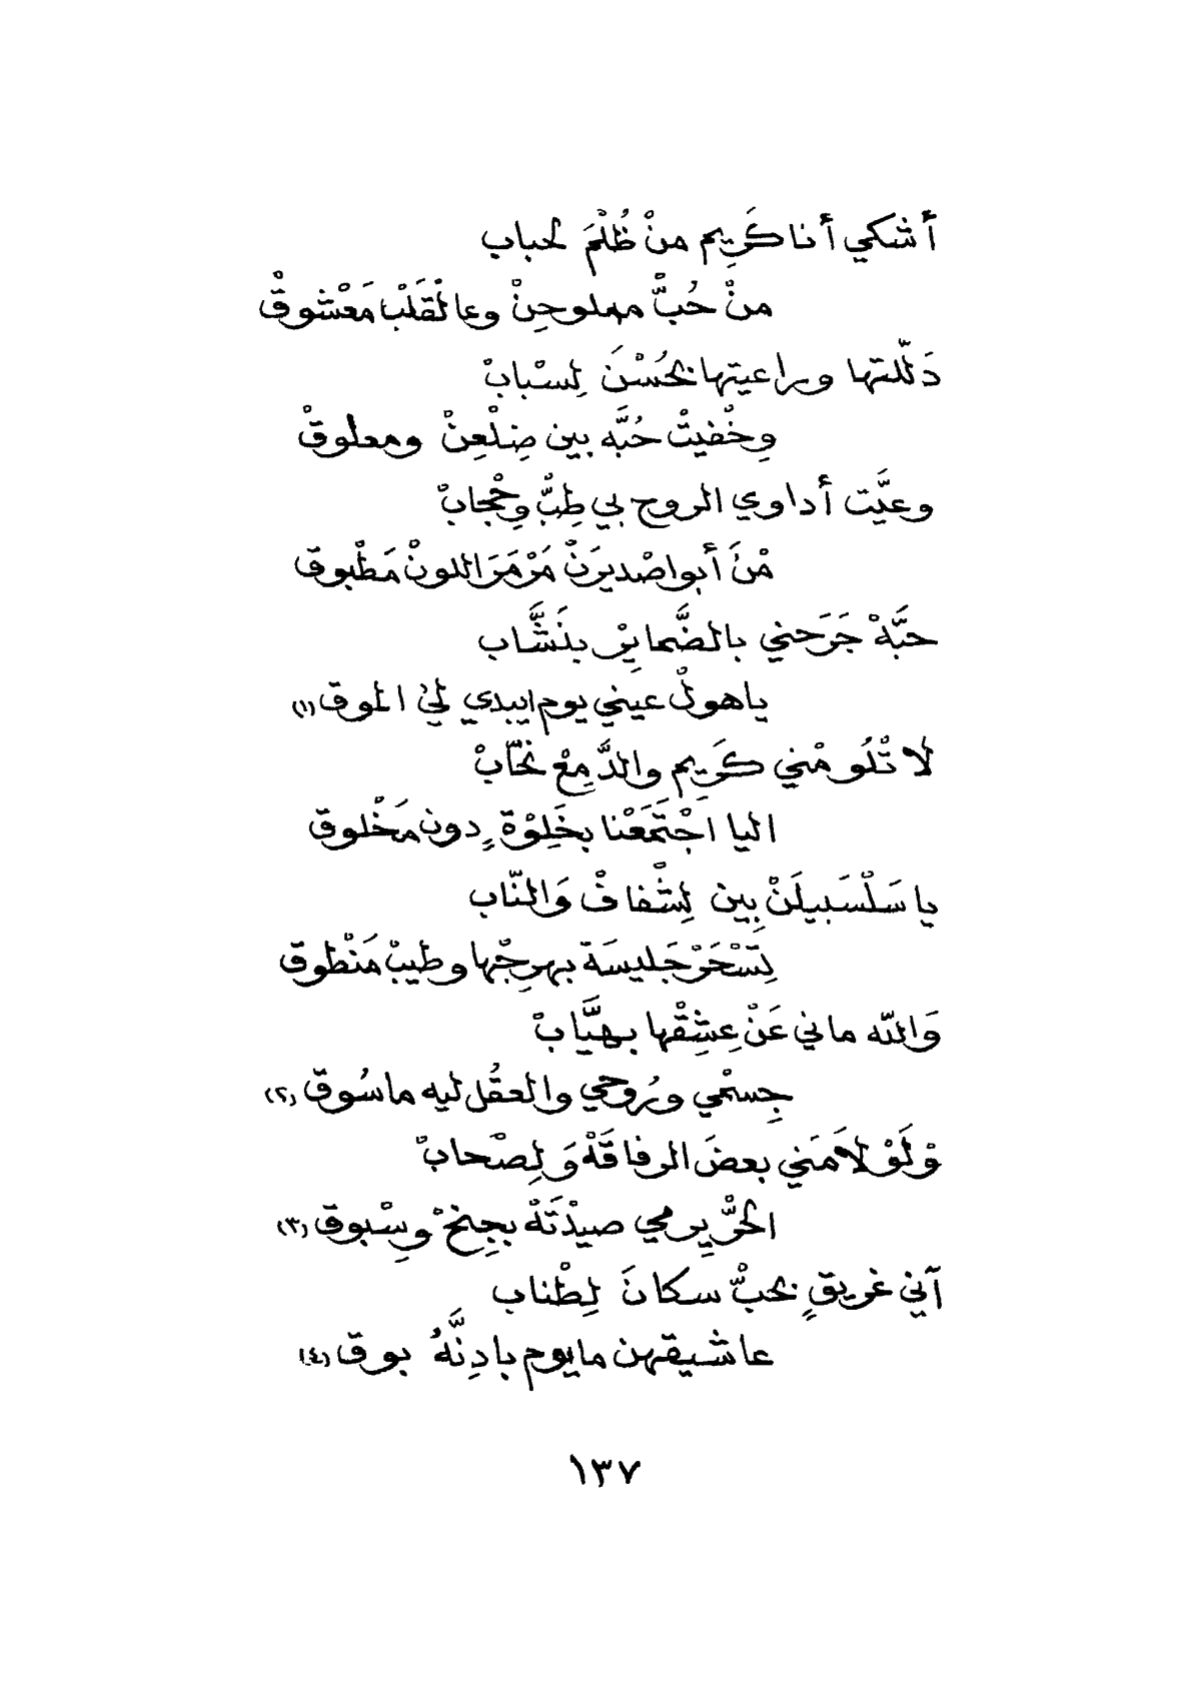 أشكي أنا كَرِيم منْ ظُلْمَ لحباب
منْ حُبٍّ مهلوجِنْ وعالقَلْب مَعْشوقْ
دَلّلتها وراعيتها بحُسْنَ لِسْبابْ
وِخْفيتْ حُبَّه بين ضِلْعِنْ ومعلوقْ
وعيَّت أداوي الروح بي طِبٍّ وِحْجابْ
مْنَ أبواصْديرَنْ مَرْمَرَ اللونْ مَطْبوق
حبَّهْ جَرَحني بالضَّمايِرْ بنَشَّاب
ياهولْ عيني يوم ايبدي ليْ الموق (١)
لا تْلُومْني كَرِيم والدَّمِعْ نخّابْ
اليا اجْتَمَعْنا بخَلِوْةٍ دون مَخْلوق
يا سَلْسَبيلَنْ بِين لِشْفافْ وَالنّاب
تِسْحَرْ جَليسَة بهرِجْها وطيبْ مَنْطوق
وَالله ماني عَنْ عِشِقْها بهيَّابْ
جِسْمي ورُوحي والعقُل ليه ماسُوق (٢)
وْلَوْ لاَمَني بعضَ الرفاقَهْ وَلِصْحابْ
الحرّْ يِرمي صيدْتَهْ بجِنحْ وِسْبوق (٣)
آني غريقٍ بحبّْ سكانَ لِطْناب
عاشيقهن مايوم بادِنَّهُ بوق (٤)
١٣٧